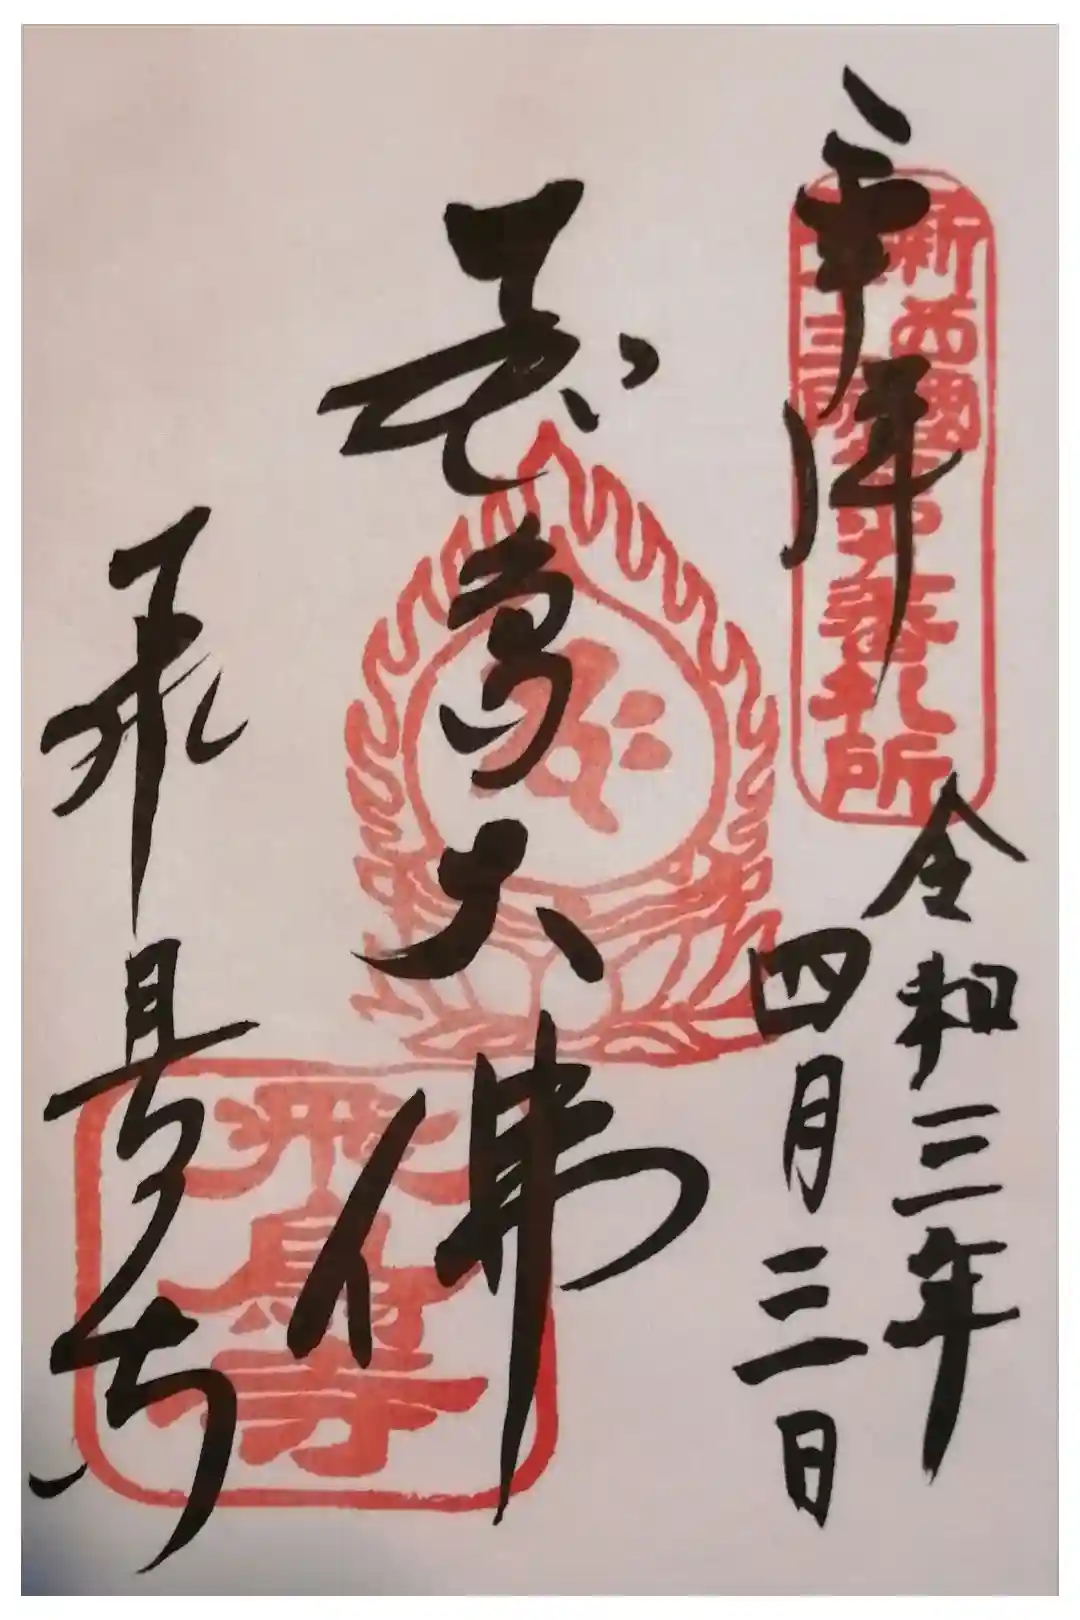 奉拝
新西國
三十三所
第九番札所
令和三年
四月三日
飛鳥大佛
飛鳥寺
飛鳥寺